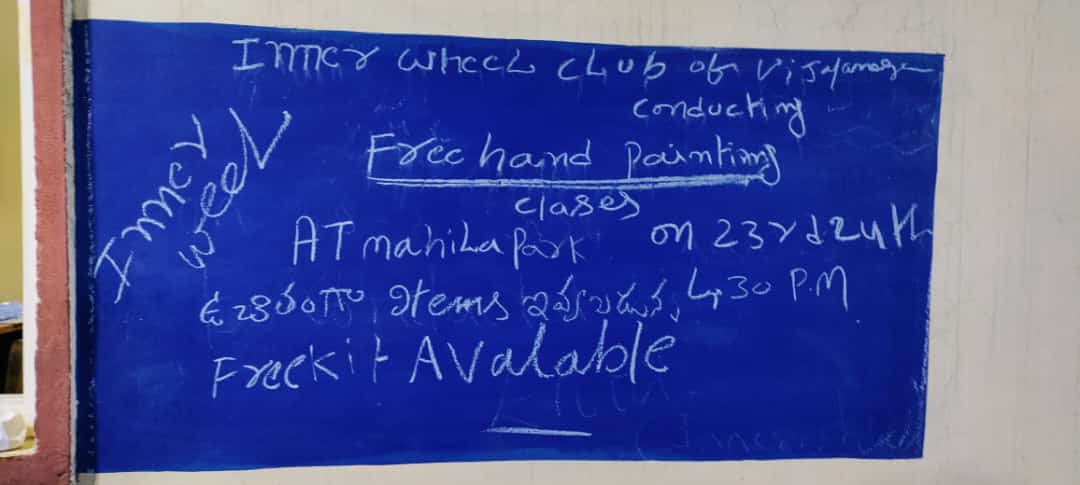 Inner wheel club of Vijayanagar
conducting
Free hand painting
clases
Inner
weel
AT mahila park on 23rd 24th
ఉచితంగా Items ఇవ్వబడును 4,30 P.M
Free kit AValable